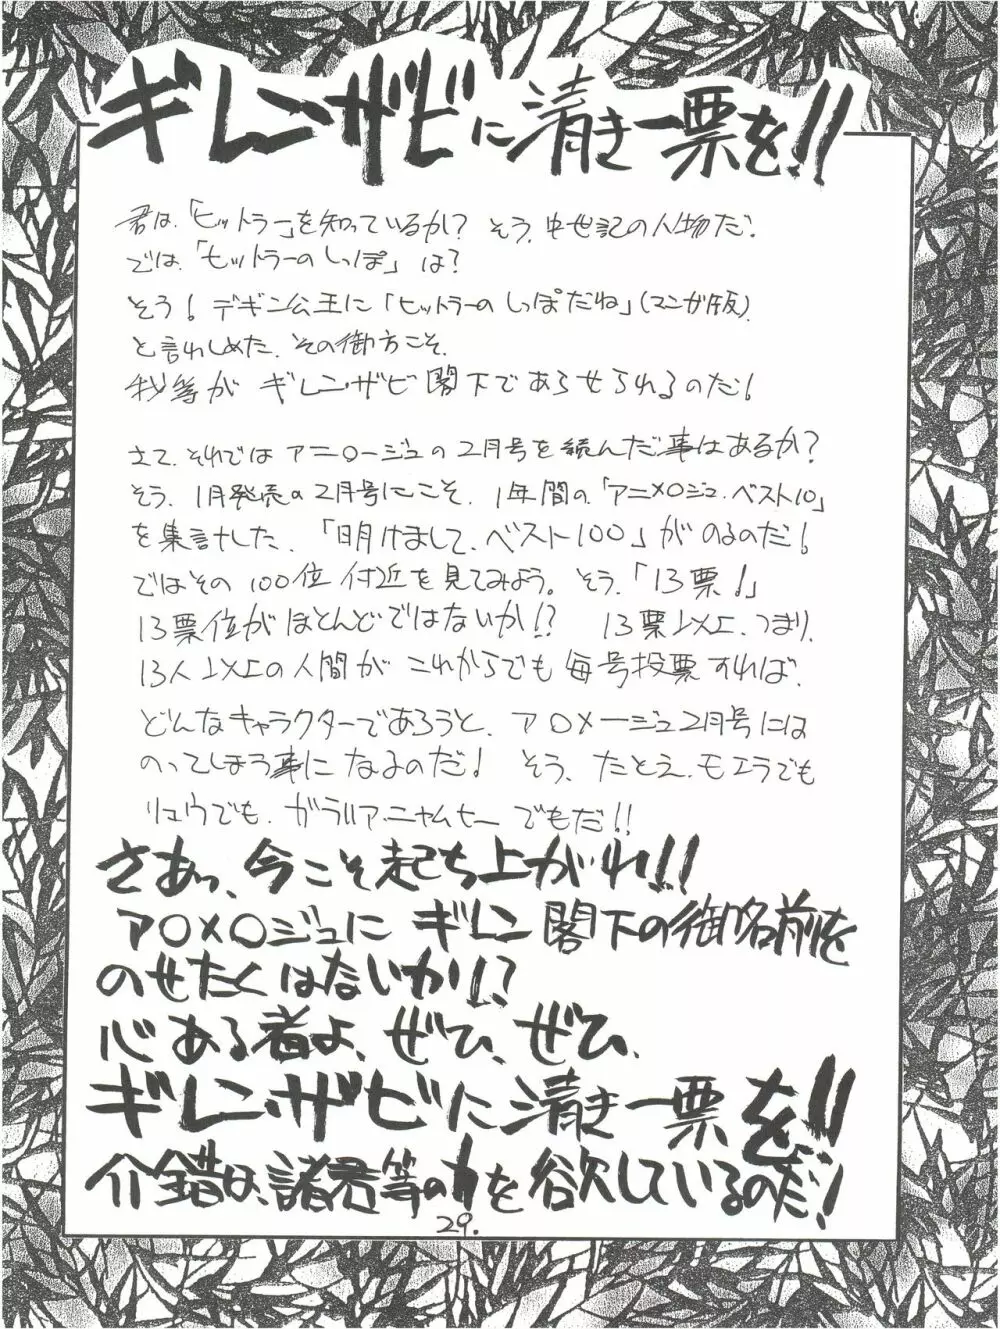 ギレン・ザビに清き一票を!!
君は、「ヒットラー」を知っているか? そう、中世記の人物だ。
では、「ヒットラーのしっぽ」は?
そう! デギン公王に「ヒットラーのしっぽだね」(マンガ版)
と言わしめた、その御方こそ、
我等が ギレン・ザビ閣下であらせられるのだ!
さて、それでは アニ〇ージュの2月号を読んだ事はあるか?
そう、1月発売の2月号にこそ、1年間の「アニメ〇ジュ・ベスト10」
を集計した、「明けまして、ベスト100」がのるのだ!
ではその100位付近を見てみよう。そう、「13票!」
13票位がほとんどではないか!? 13票以上、つまり、
13人以上の人間が これからでも毎号投票すれば、
どんなキャラクターであろうと、ア〇メージュ2月号には
のってしまう事になるのだ! そう、たとえ、モエラでも
リュウでも、ガラリア・ニャムヒー でもだ!!
さあっ、今こそ起ち上がれ!!
ア〇メ〇ジュに ギレン閣下の御名前を
のせたくはないか!?
心ある者よ、ぜひ、ぜひ、
ギレン・ザビに清き一票を!!
介錯は、諸君等の力を欲しているのだ!
29.